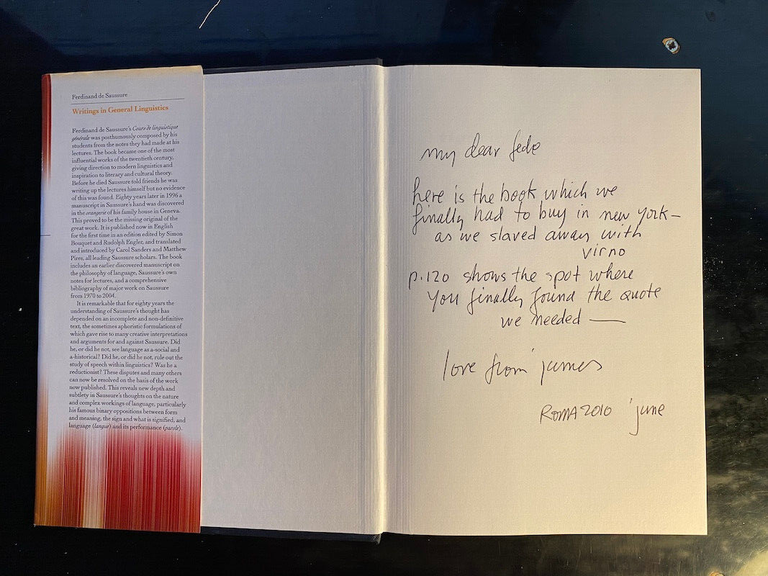 Ferdinand de Saussure
Writings in General Linguistics
Ferdinand de Saussure's Cours de linguistique
générale was posthumously composed by his
students from the notes they had made at his
lectures. The book became one of the most
influential works of the twentieth century,
giving direction to modern linguistics and
inspiration to literary and cultural theory.
Before he died Saussure told friends he was
writing up the lectures himself but no evidence
of this was found. Eighty years later in 1996 a
manuscript in Saussure's hand was discovered
in the orangerie of his family house in Geneva.
This proved to be the missing original of the
great work. It is published now in English
for the first time in an edition edited by Simon
Bouquet and Rudolph Engler, and translated
and introduced by Carol Sanders and Matthew
Pires, all leading Saussure scholars. The book
includes an earlier discovered manuscript on
the philosophy of language, Saussure's own
notes for lectures, and a comprehensive
bibliography of major work on Saussure
from 1970 to 2004.
It is remarkable that for eighty years the
understanding of Saussure's thought has
depended on an incomplete and non-definitive
text, the sometimes aphoristic formulations of
which gave rise to many creative interpretations
and arguments for and against Saussure. Did
he, or did he not, see language as a-social and
a-historical? Did he, or did he not, rule out the
study of speech within linguistics? Was he a
reductionist? These disputes and many others
can now be resolved on the basis of the work
now published. This reveals new depth and
subtlety in Saussure's thoughts on the nature
and complex workings of language, particularly
his famous binary oppositions between form
and meaning, the sign and what is signified, and
language (langue) and its performance (parole).
my dear fede
here is the book which we
finally had to buy in new york –
as we slaved away with
virno
p.120 shows the spot where
you finally found the quote
we needed —
love from james
ROMA 2010 june